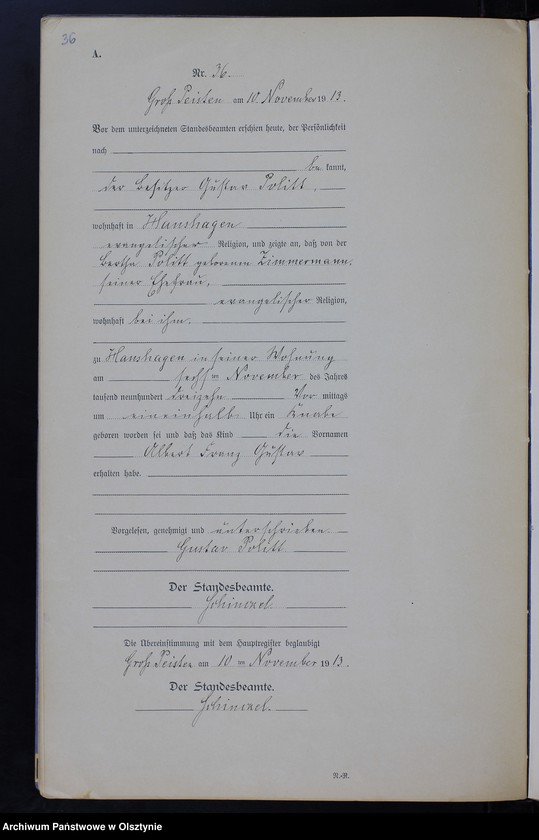 36
A.
Nr. 36.
Groß Peisten am 10. November 1913.
Vor dem unterzeichneten Standesbeamten erschien heute, der Persönlichkeit
nach
be kannt,
der Besitzer Gustav Politt,
wohnhaft in Hanshagen
evangelischer Religion, und zeigte an, daß von der
Bertha Politt geborenen Zimmermann,
seiner Ehefrau,
evangelischer Religion,
wohnhaft bei ihm.
zu Hanshagen in seiner Wohnung
am sechs ten November des Jahres
tausend neunhundert dreizehn Vor mittags
um eineinhalb Uhr ein Knabe
geboren worden sei und daß das Kind die Vornamen
Albert Franz Gustav
erhalten habe.
Vorgelesen, genehmigt und unterschrieben.
Gustav Politt
Der Standesbeamte.
Schinckel.
Die Übereinstimmung mit dem Hauptregister beglaubigt
Groß Peisten am 10 ten November 1913.
Der Standesbeamte.
Schinckel.
R.-R.
Archiwum Państwowe w Olsztynie